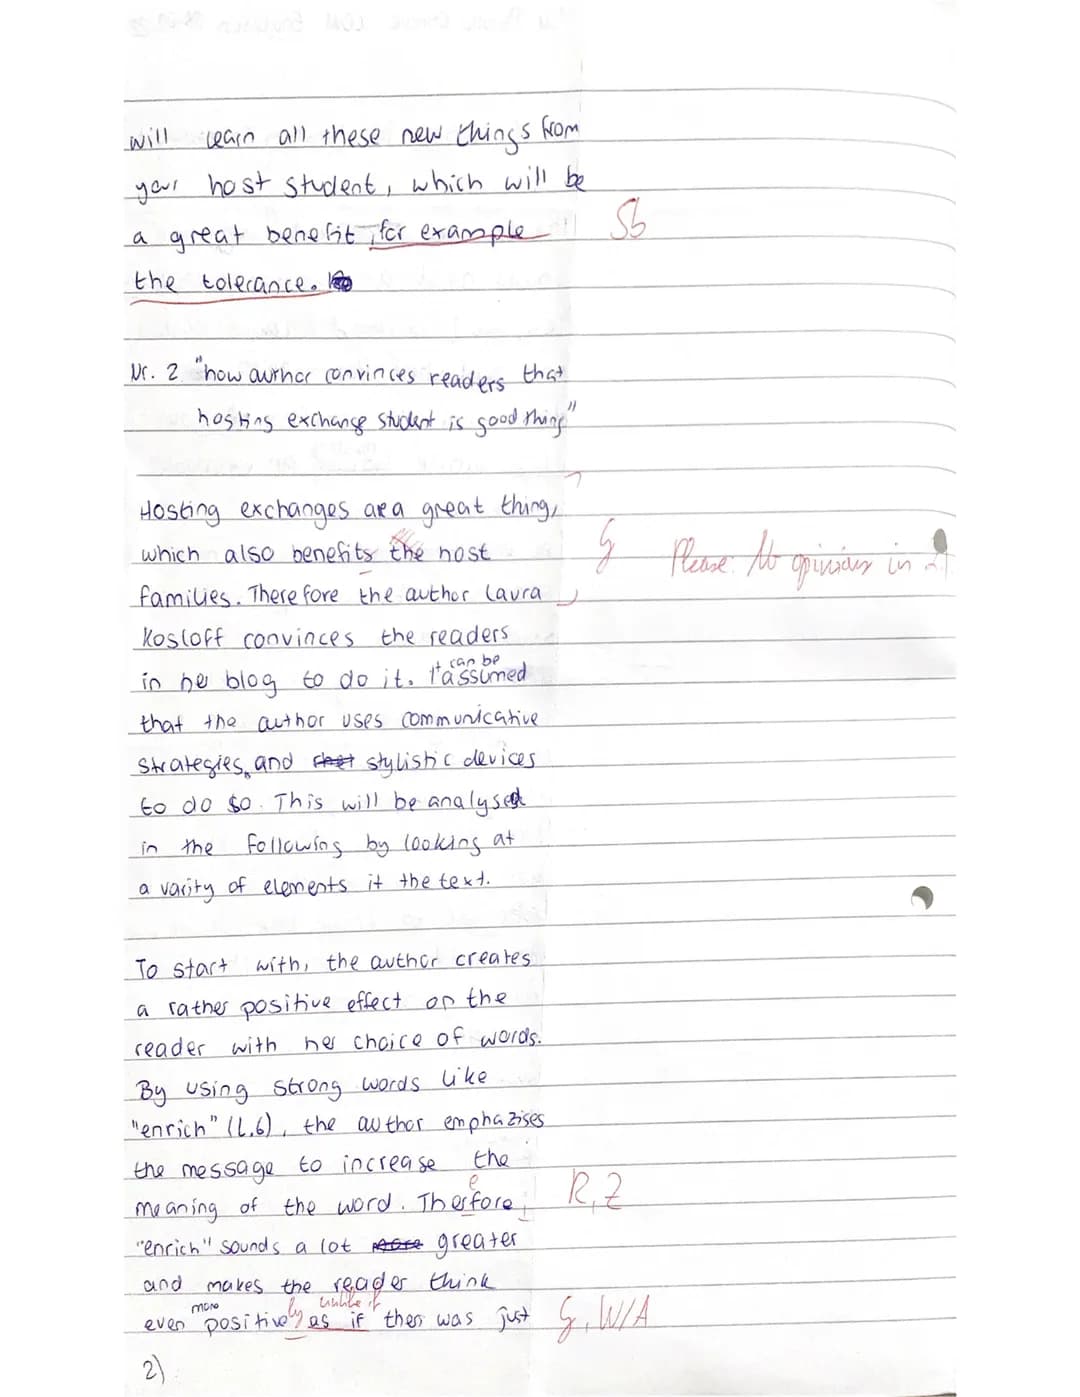 will learn all these new things from
your host student, which will be
a great benefit, for example Sb
the tolerance.
Nr. 2 "how author convinces readers that
hosting exchange student is good thing"
Hosting exchanges are a great thing,
which also benefits the host G Please: No opinions in 2!
families. Therefore the author Laura
Kosloff convinces the readers
in her blog to do it. It can be assumed
that the author uses communicative
strategies, and stylistic devices
to do so. This will be analysed
in the following by looking at
a varity of elements it the text.
To start with, the author creates
a rather positive effect on the
reader with her choice of words.
By using strong words like
"enrich" (l.6), the author emphazises
the message to increase the
meaning of the word. Therfore, e R, Z
"enrich" sounds a lot more greater
and makes the reader think
even more positively as if ther was just unlike if G, W/A
2)